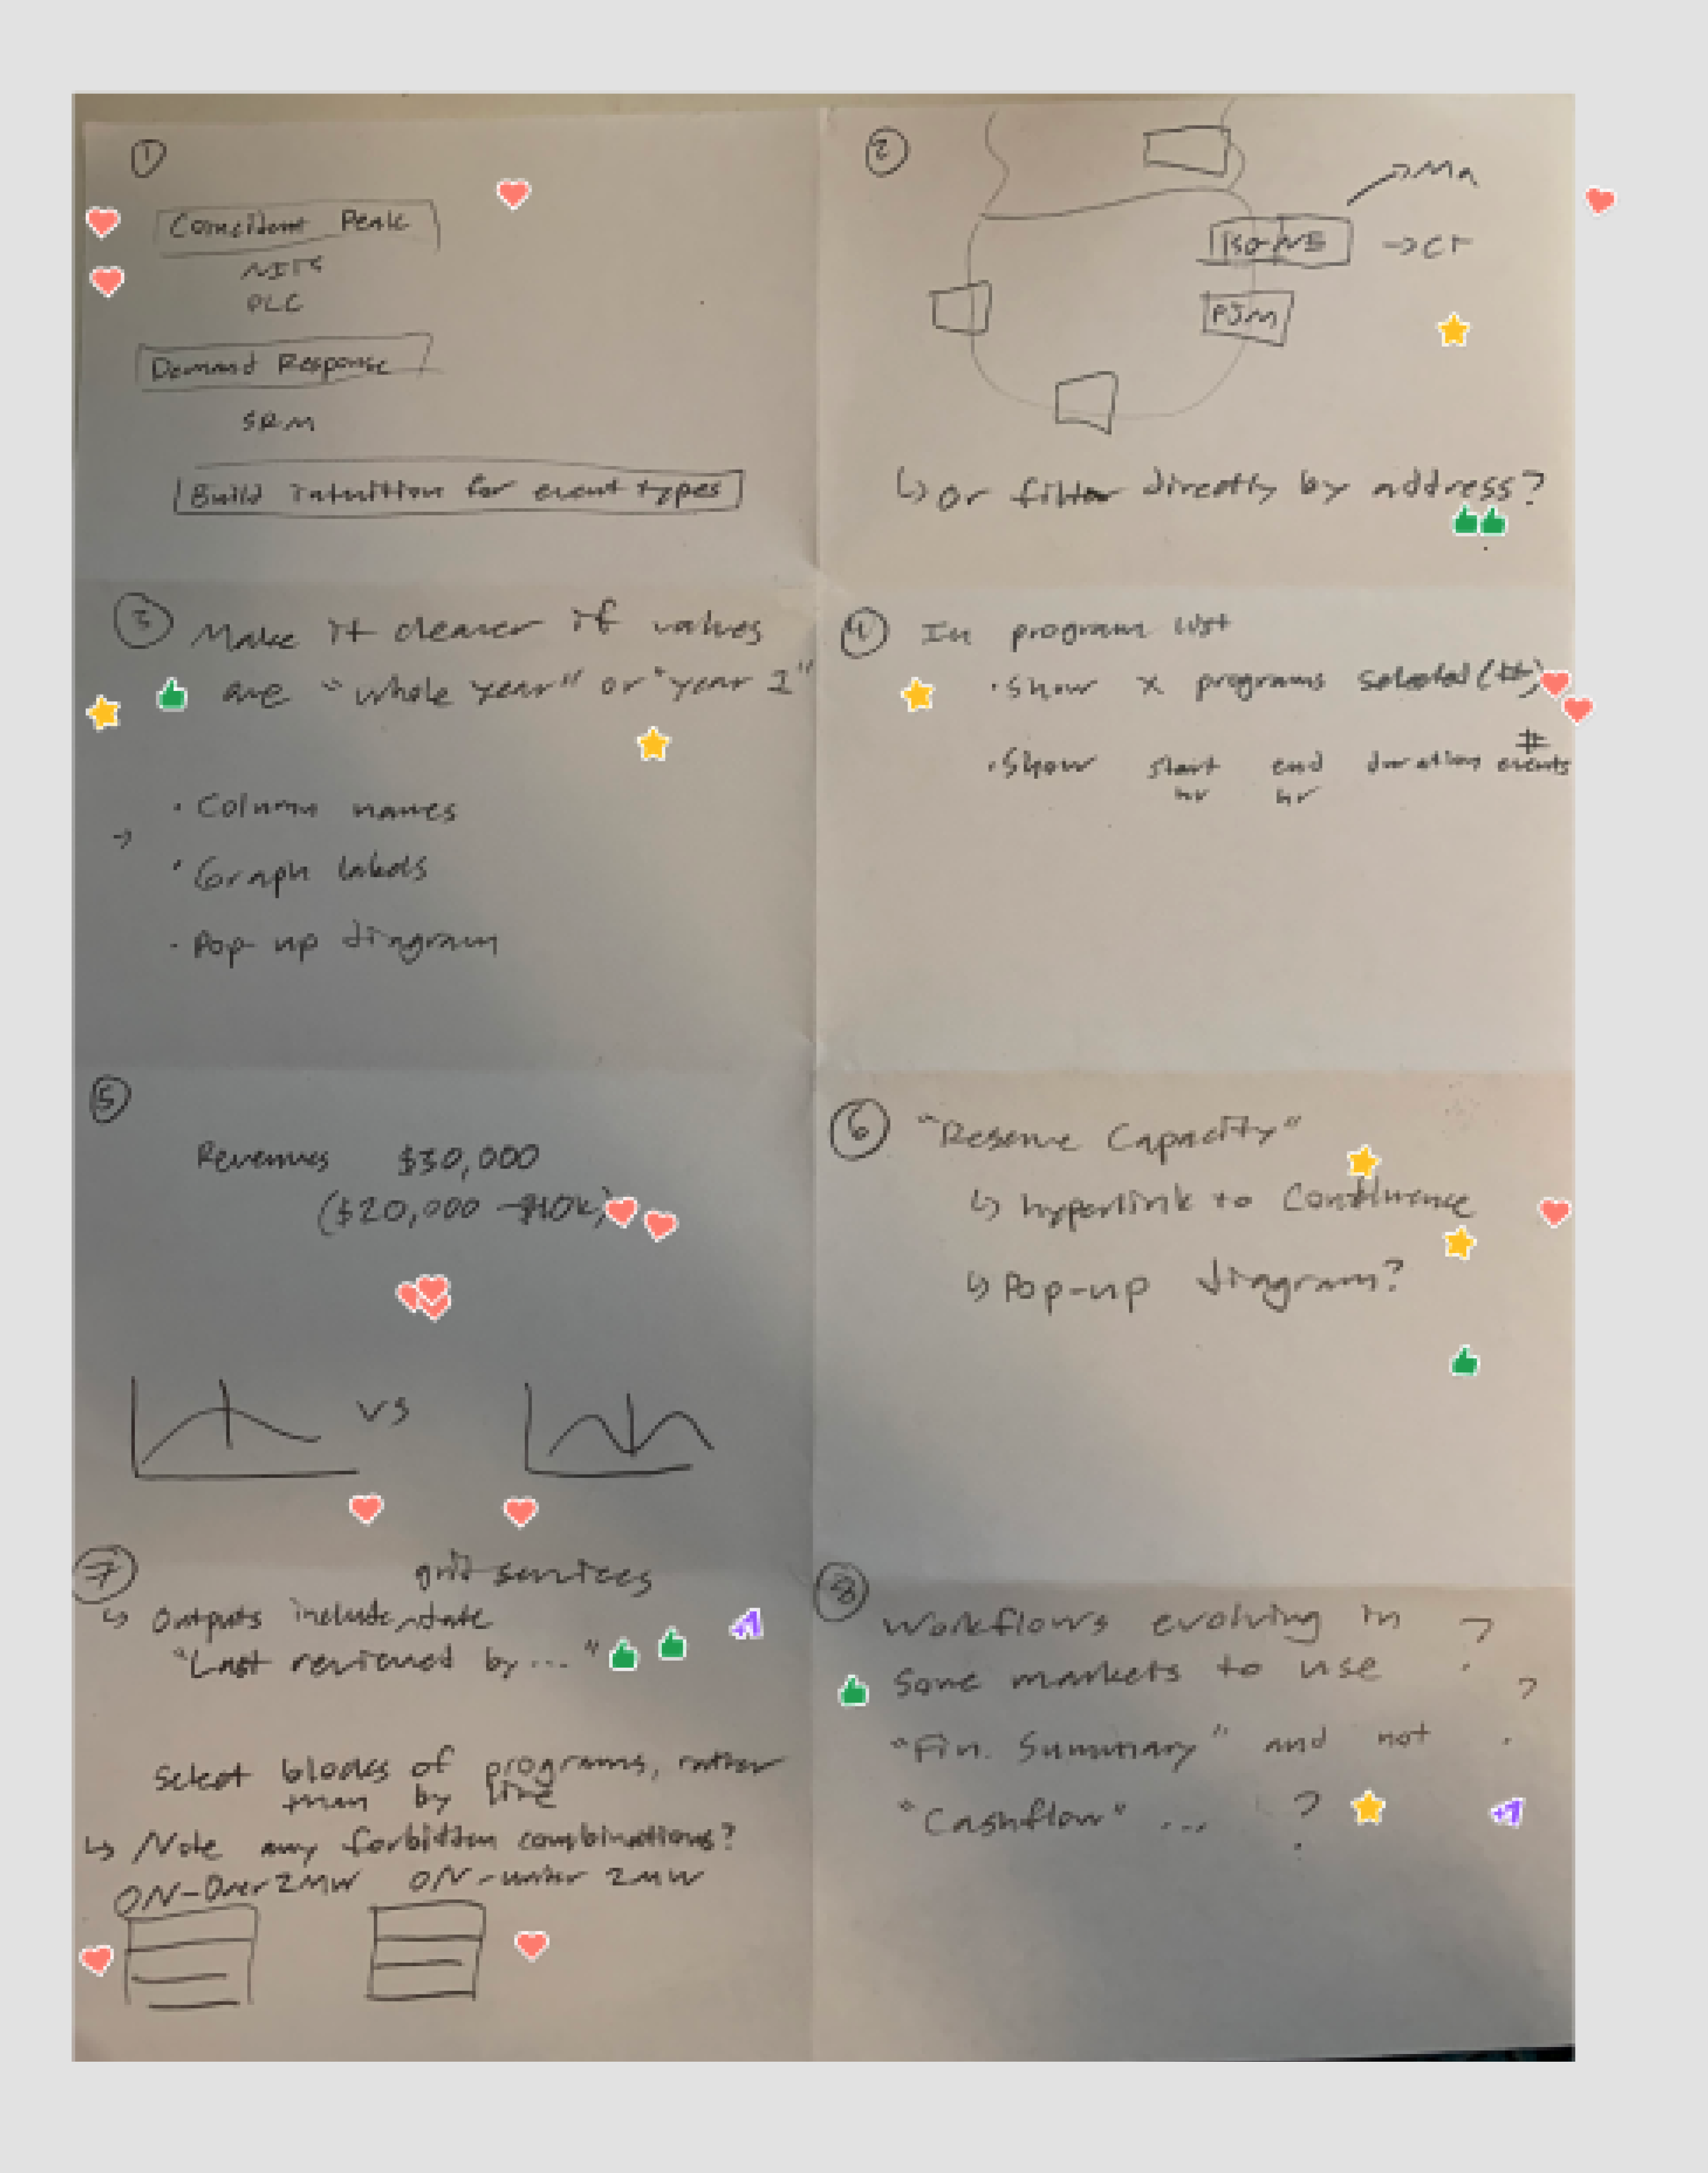 1
Coincident Peak
NITS
PLC
Demand Response
SRM
Build intuition for event types
2
→ Ma
ISO-NE → CT
PJM
↳ or filter directly by address?
3 Make it clearer if values
are "whole year" or "year 1"
• Column names
→
• Graph labels
• Pop-up diagram
4 In program list
• Show x programs selected (##)
• Show start hr end hr duration # events
5
Revenues $30,000
($20,000 - $40k)
vs
6 "Reserve Capacity"
↳ hyperlink to Confluence
↳ Pop-up diagram?
7
grid services
↳ Outputs include date
"Last reviewed by ..."
+1
Select blocks of programs, rather
than by line
↳ Note any forbidden combinations?
ON-Over 2MW ON-under 2MW
8
Workflows evolving in ?
Some markets to use ?
"Fin. Summary" and not
"Cashflow" ... ?
+1